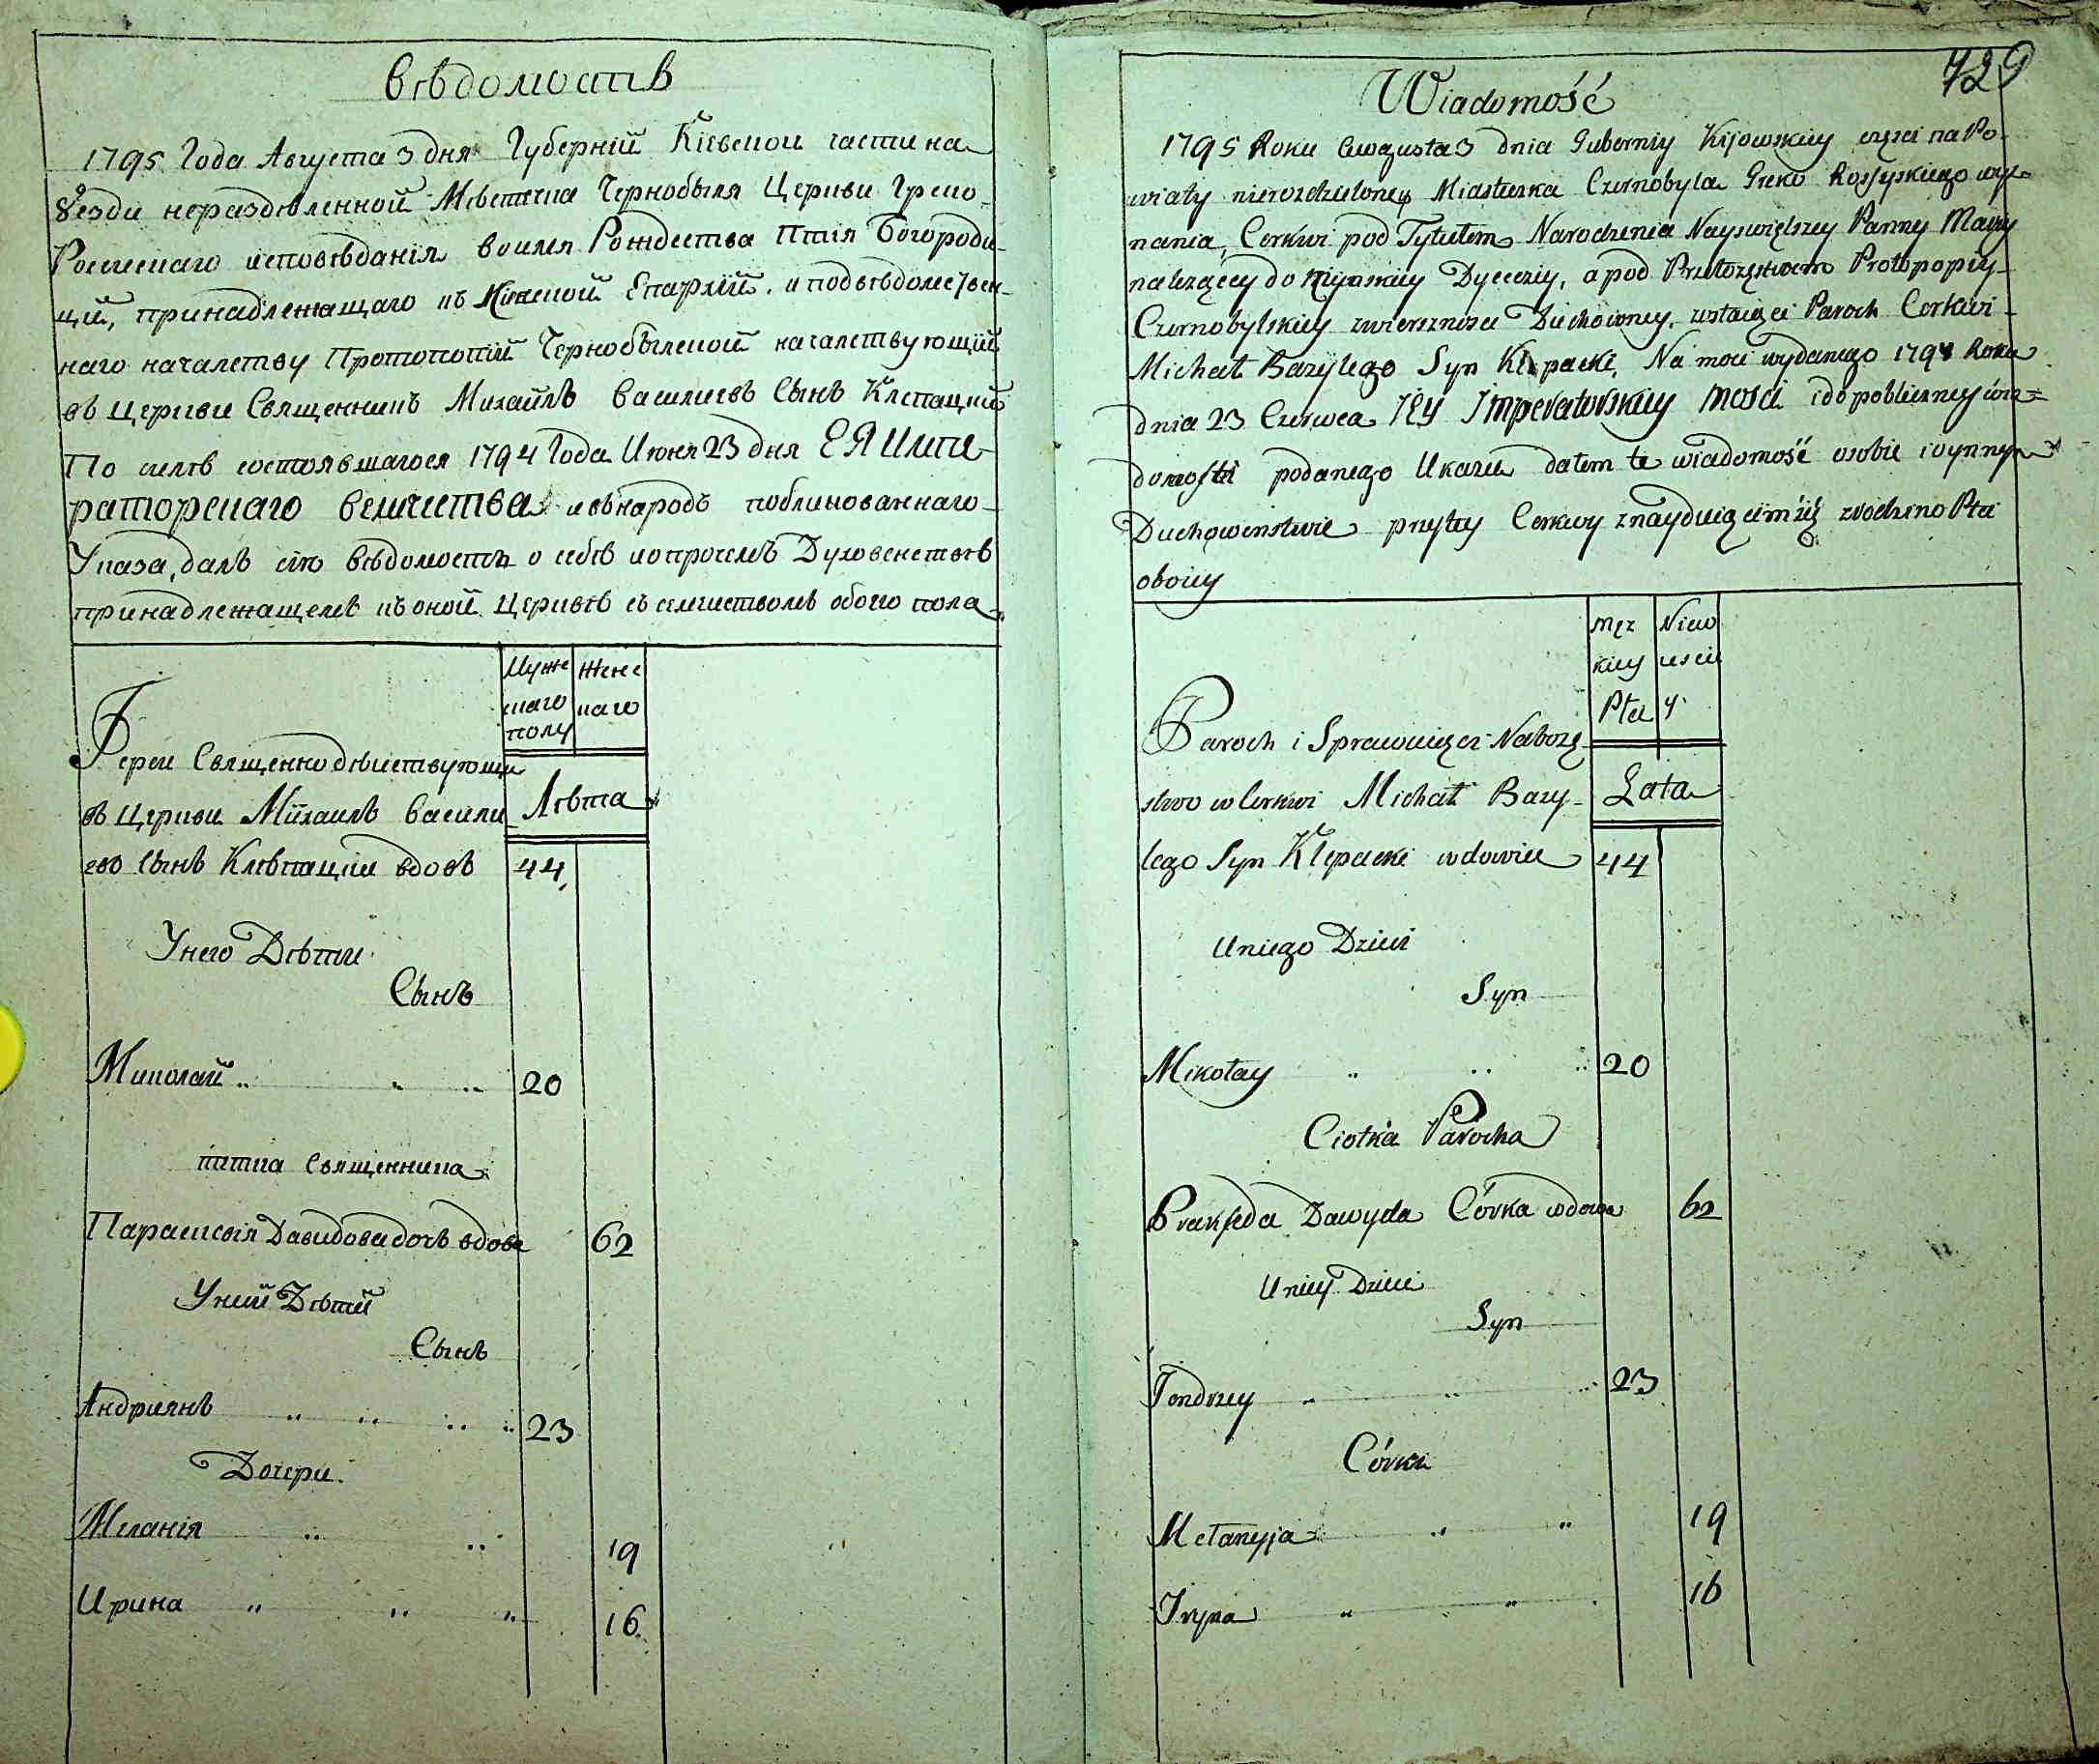 Вѣдомость
1795 Года Августа 3 дня Губернїй Кїевской части на
Уезди нераздѣленной Мѣстечка Чернобыля Церкви Греко-
Россискаго исповѣданїя воимя Рождества Птїя Богороди-
ци, принадлежащаго къ Кїевской Епархїй. и подвѣдомствен-
наго началству Протопопїй Чернобылской началствующїй
въ Церкви Священникъ Михайлъ Василиевъ Сынъ Клепацкий
По силѣ состоявшагося 1794 Года Июня 23 дня ЕЯ Импе-
раторскаго величества и внародъ побликованнаго
Указа, далъ сїю Вѣдомость о себѣ и опрочемъ Духовенствѣ
принадлежащемъ къ оной Церквѣ съ семиством обоего пола
Муже
скаго
полу
Женс
каго
Їереи Священнодѣиствующи
въ Церкви Мїхаилъ Васили
Лѣта
евъ Сынъ Клѣпацкїи вдовъ 44
Унего Дѣти
Сынъ
Миколай 20
титка Священника
Параскевїя Давидова дочь вдова 62
Уней Дѣтей
Сынъ
Андриянъ 23
Дочери
Меланїя 19
Ирина 16
729
Wiadomość
1795 Roku Augusta 3 dnia Guberniy Kijowskiey części na Po-
wiaty nierozdzieloney Miasteczka Czernobyla Greko Rossyskiego wyz-
nania, Cerkwi pod Tytułem Narodzenia Nayswiętszey Panny Maryi
należącey do Kijowskiey Dyeceziy, a pod Przełożęstwem Protopopiy
Czernobylskiey zwierzchnosci Duchowney. zostaiąci Paroch Cerkwi
Michał Bazylego Syn Klepacki, Na moci wydanego 1794 Roku
dnia 23 Czerwca JEy Imperatorskiey Mości ido publiczney wia=
domosti podanego Ukazu dałem te wiadomość osobie i o ynnym
Duchowenstwie przytey Cerkwy znayduiącimsię zrodzino Płci
oboiey
Męz
kiey
Płci
Niew
iesciey
Paroch i Sprawuiąci Naboże
stwo w Cerkwi Michał Bazy-
Lata
lego Syn Klepacki wdowiec 44
Uniego Dzieci
Syn
Mikołay 20
Ciotka Parocha
Prakseda Dawyda Córka wdowa 62
Uniey Dzieci
Syn
Jendrzey 23
Córki
Mełanyja 19
Iryna 16